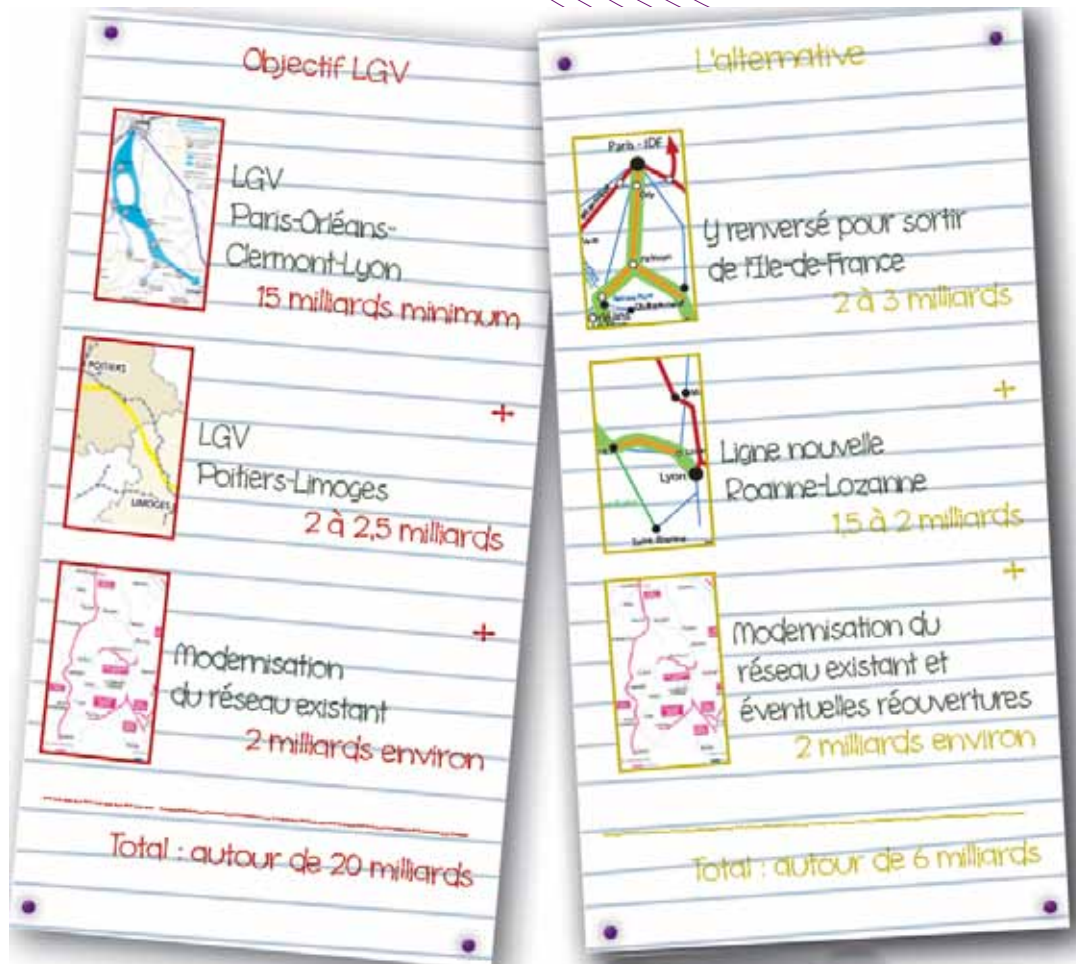 Objectif LGV
LGV
Paris-Orléans-
Clermont-Lyon
15 milliards minimum
POITIERS
LIMOGES
+
LGV
Poitiers-Limoges
2 à 2,5 milliards
+
Modernisation
du réseau existant
2 milliards environ
Total : autour de 20 milliards
L'alternative
Paris - IDF
Orly
Y renversé pour sortir
de l'Ile-de-France
2 à 3 milliards
+
Lyon
Saint-Etienne
Ligne nouvelle
Roanne-Lozanne
1,5 à 2 milliards
+
Modernisation du
réseau existant et
éventuelles réouvertures
2 milliards environ
Total : autour de 6 milliards